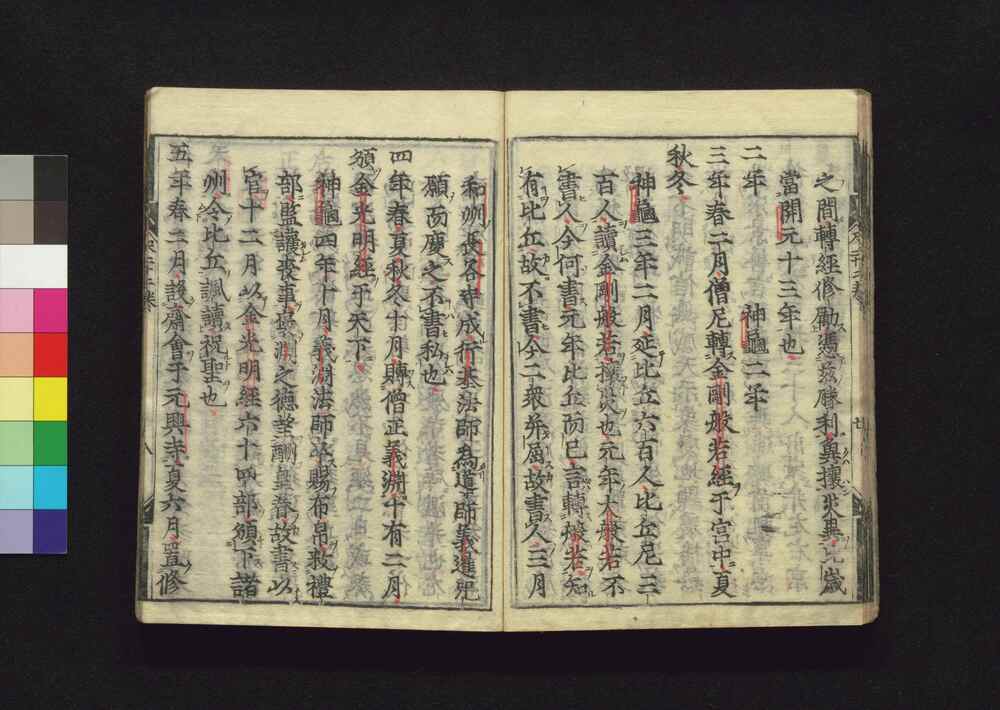 之間轉經修勵憑茲勝利與攘災異比歲
當開元十三年也
二年 神龜二年
三年春二月僧尼轉金剛般若經于宮中夏
秋冬
神龜三年二月延比丘六百人比丘尼三
百人讀金剛般若攘災也元年大般若不
書人今何書元年比丘而已言轉般若知
有比丘故不書今二衆并屈故書人三月
和州 各寺成行基法師為導師義進
願而慶之不書私也
四年春夏秋冬十月賻僧正義淵十有二月
頒金光明經于天下
神龜四年十月義淵法師 賜布帛 禮
部監護喪事 淵之德 眷故書以
官十二月以金光明經六十四部頒下諸
州令比丘諷讀祝聖也
五年春二月設齋會于元興寺夏六月置修